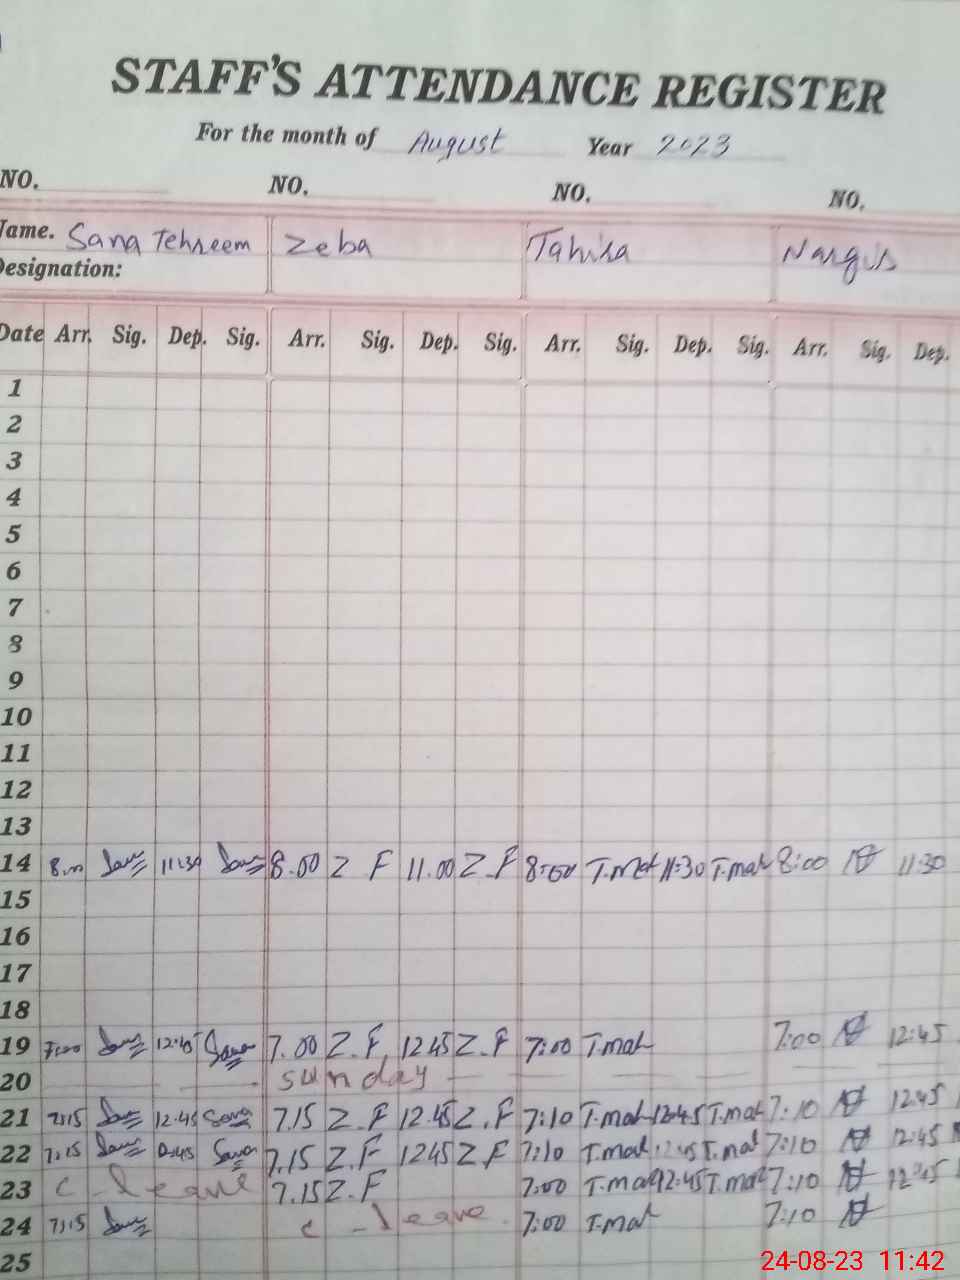 STAFF'S ATTENDANCE REGISTER
For the month of August Year 2023
NO. NO. NO. NO.
Name. Sana Tehreem Zeba Tahira Nargis
Designation:
Date Arr. Sig. Dep. Sig. Arr. Sig. Dep. Sig. Arr. Sig. Dep. Sig. Arr. Sig. Dep.
1
2
3
4
5
6
7
8
9
10
11
12
13
14 11:30 8.00 Z F 11.00 Z.F 8:00 T.mat 11:30 T.mat 8:00 11:30
15
16
17
18
19 7:00 12:45 Sana 7.00 Z.F 1245 Z.F 7:00 T.mat 7:00 12:45
20 Sunday
21 7:15 12:45 Sana 7.15 Z.F 12.45 Z.F 7:10 T.mat 12:45 T.mat 7:10 12:45
22 7:15 Sana 7.15 Z.F 1245 Z F 7:10 T.mat 12:45 T.mat 7:10 12:45
23 C - leave 7.15 Z.F 7:00 T.mat 12:45 T.mat 7:10 12:45
24 7:15 C - leave. 7:00 T.mat 7:10
25
24-08-23 11:42